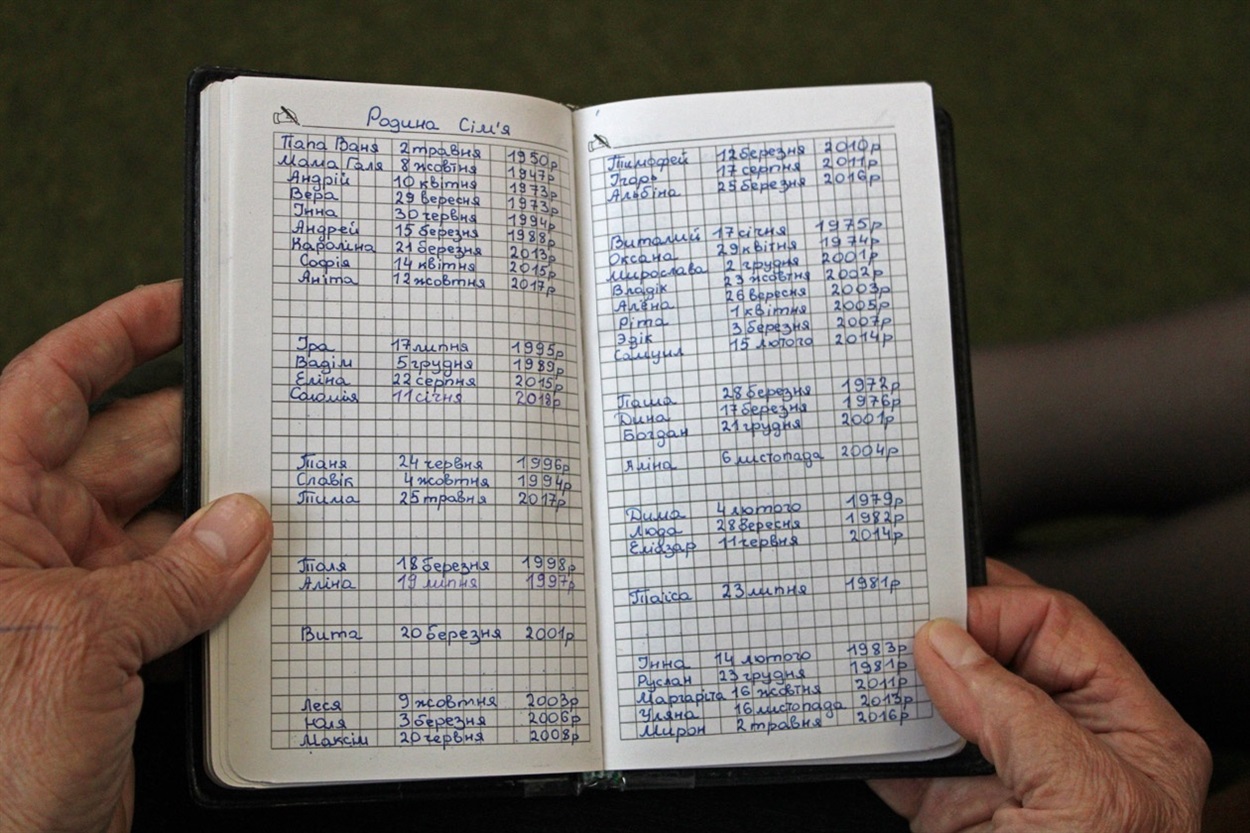 Родина Сім'я
Папа Ваня 2 травня 1950р
Мама Галя 8 жовтня 1947р
Андрій 10 квітня 1973р
Вера 29 вересня 1973р
Інна 30 червня 1994р
Андрей 15 березня 1988р
Кароліна 21 березня 2013р
Софія 14 квітня 2015р
Аніта 12 жовтня 2017р
Іра 17 липня 1995р
Вадім 5 грудня 1989р
Еліна 22 серпня 2015р
Соломія 11 січня 2018р
Таня 24 червня 1996р
Славік 4 жовтня 1994р
Тима 25 травня 2017р
Толя 18 березня 1998р
Аліна 19 липня 1997р
Вита 20 березня 2001р
Леся 9 жовтня 2003р
Юля 3 березня 2006р
Максім 20 червня 2008р
Тимофей 12 березня 2010р
Ігорь 17 серпня 2011р
Альбіна 25 березня 2016р
Виталий 17 січня 1975р
Оксана 29 квітня 1974р
Мирослава 2 грудня 2001р
Владік 23 жовтня 2002р
Алёна 26 вересня 2003р
Ріта 1 квітня 2005р
Эдік 3 березня 2007р
Самуил 15 лютого 2014р
Паша 28 березня 1972р
Дина 17 березня 1976р
Богдан 21 грудня 2001р
Аліна 6 листопада 2004р
Дима 4 лютого 1979р
Люда 28 вересня 1982р
Еліазар 11 червня 2014р
Таїса 23 липня 1981р
Інна 14 лютого 1983р
Руслан 23 грудня 1981р
Маргаріта 16 жовтня 2011р
Уляна 16 листопада 2013р
Мирон 2 травня 2016р